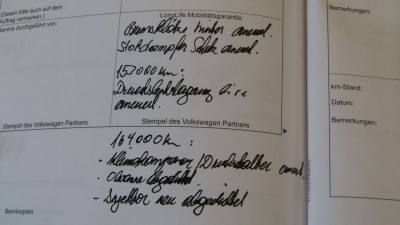 (Diesen bitte auch auf dem
Auftrag vermerken.)
LongLife Mobilitätsgarantie
Bemerkungen:
Service durchgeführt von:
Bremsklötze hinter erneuert.
Stoßdämpfer erneuert.
152000 km:
erneuert.
Stempel des Volkswagen Partners
Stempel des Volkswagen Partners
km-Stand:
Datum:
Bemerkungen:
164000 km:
- Klimakompressor / Druckschalter erneuert.
- Ölwanne abgedichtet
- Injektor neu abgedichtet
Serviceplan